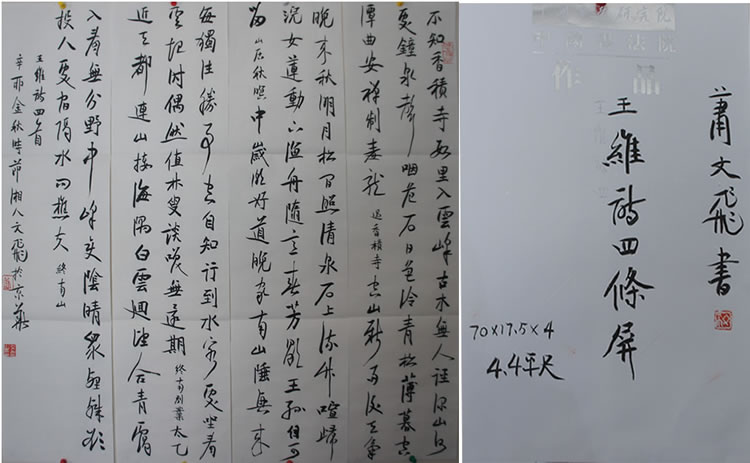 不知香積寺數里入雲峰古木無人徑深山何
處鐘泉聲咽危石日色冷青松薄暮空
潭曲安禪制毒龍 過香積寺 空山新雨後天氣
晚來秋明月松間照清泉石上流竹喧歸
浣女蓮動下漁舟隨意春芳歇王孫自可
留 山居秋暝 中歲頗好道晚家南山陲興來
每獨往勝事空自知行到水窮處坐看
雲起時偶然值林叟談笑無還期 終南別業 太乙
近天都連山接海隅白雲迴望合青靄
入看無分野中峰變陰晴眾壑殊欲
投人處宿隔水問樵夫 終南山
王維詩四首
辛卯金秋時節湘人文飛於京華
研究院
書法院
作品
蕭文飛書
王維詩四條屏
70×17.5×4
4.4平尺